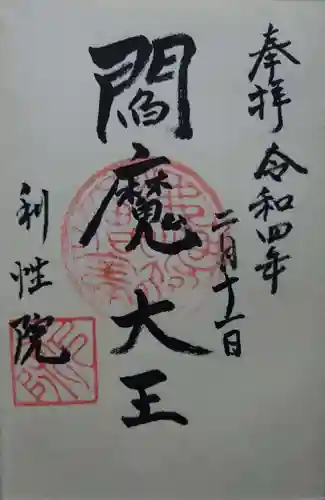 奉拝
令和四年
二月十二日
閻魔大王
利性院